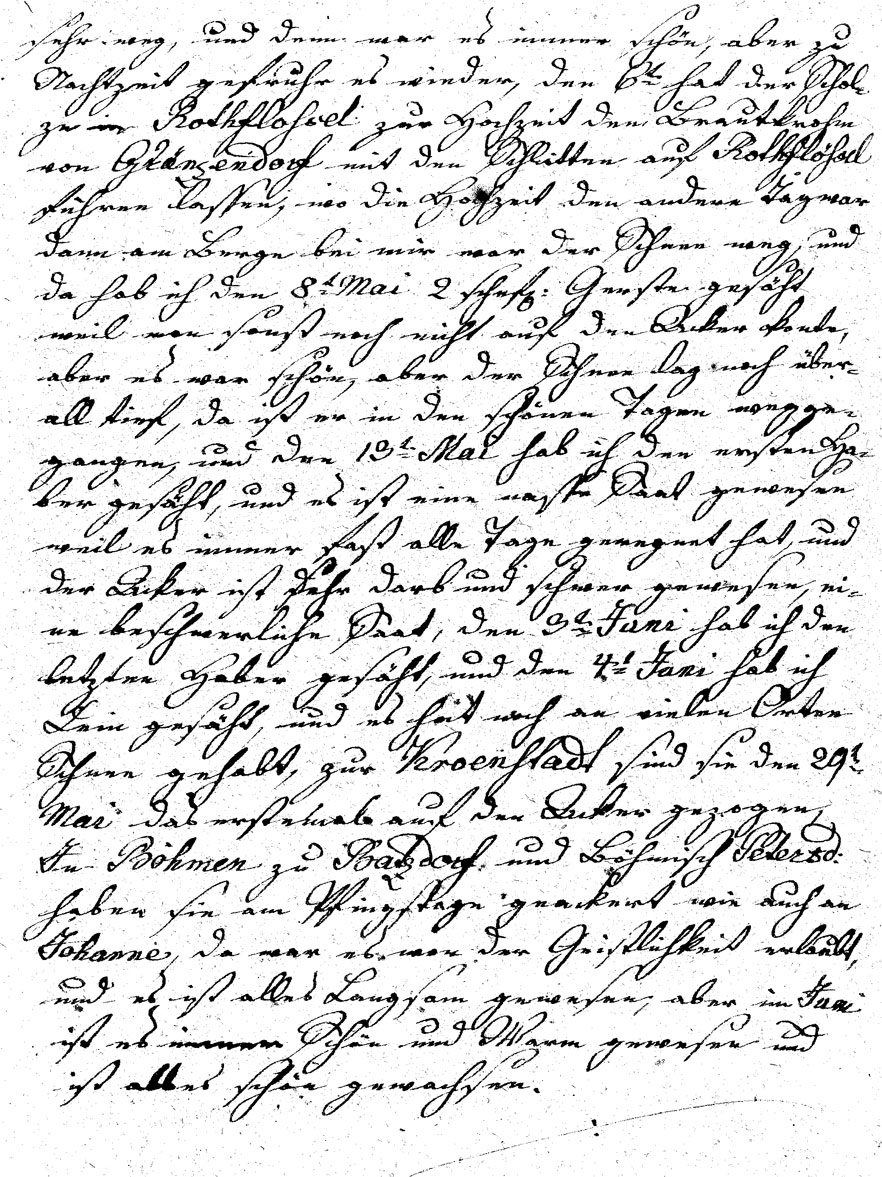 sehr weg, und denn war es immer schön, aber zu
Nachtzeit gefruhr es wieder, den 6t hat der Schol-
ze in Rothflössel zur Hochzeit den Brautkrohm
von Gränzendorf mit den Schlitten auf Rothflössel
führen lassen, wo die Hochzeit den andern Tag war
dann am Berge bei mir war der Schnee weg, und
da hab ich den 8t Mai 2 schefg: Gerste gesäht
weil man sonst noch nicht auf den Acker konte,
aber es war schön, aber der Schnee lag noch über-
all tief, da ist er in den schönen Tagen wegge-
gangen, und den 13t Mai hab ich den ersten Ha-
ber gesäht, und es ist eine nasse Saat gewesen
weil es immer fast alle Tage geregnet hat, und
der Acker ist sehr darb und schwer gewesen, ei-
ne beschwerliche Saat, den 3t Juni hab ich den
letzten Haber gesäht, und den 4t Juni hab ich
Lein gesäht, und es hat noch an vielen Orten
Schnee gehabt, zur Kroenstadt sind sie den 29t
Mai das erstemal auf den Acker gezogen,
In Böhmen zu Batzdorf und Böhmisch Petersd:
haben sie am Pfingstage geackert wie auch an
Johanne, da war es von der Geistlichkeit erlaubt,
und es ist alles Langsam gewesen, aber im Juni
ist es immer Schön und Warm gewesen und
ist alles schön gewachsen.